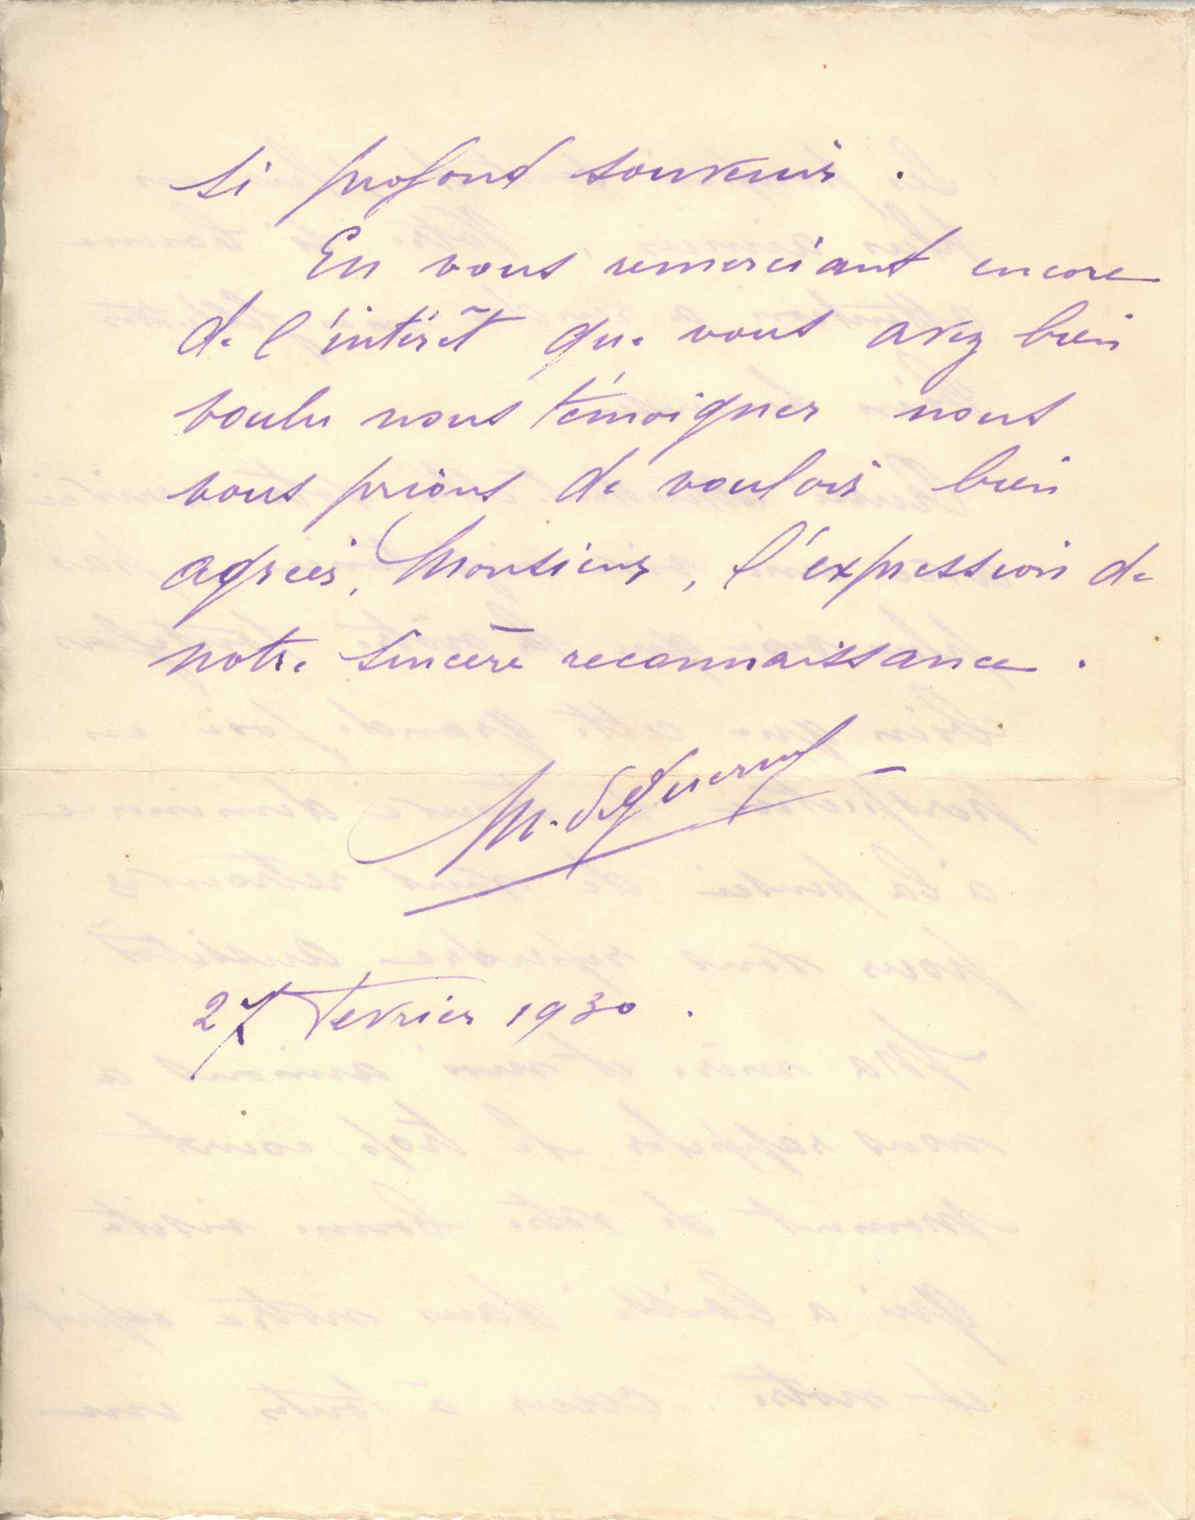 si profond souvenir.
En vous remerciant encore
de l'intérêt que vous avez bien
voulu nous témoigner nous
vous prions de vouloir bien
agréer, Monsieur, l'expression de
notre sincère reconnaissance.
M.
27 Fevrier 1930.